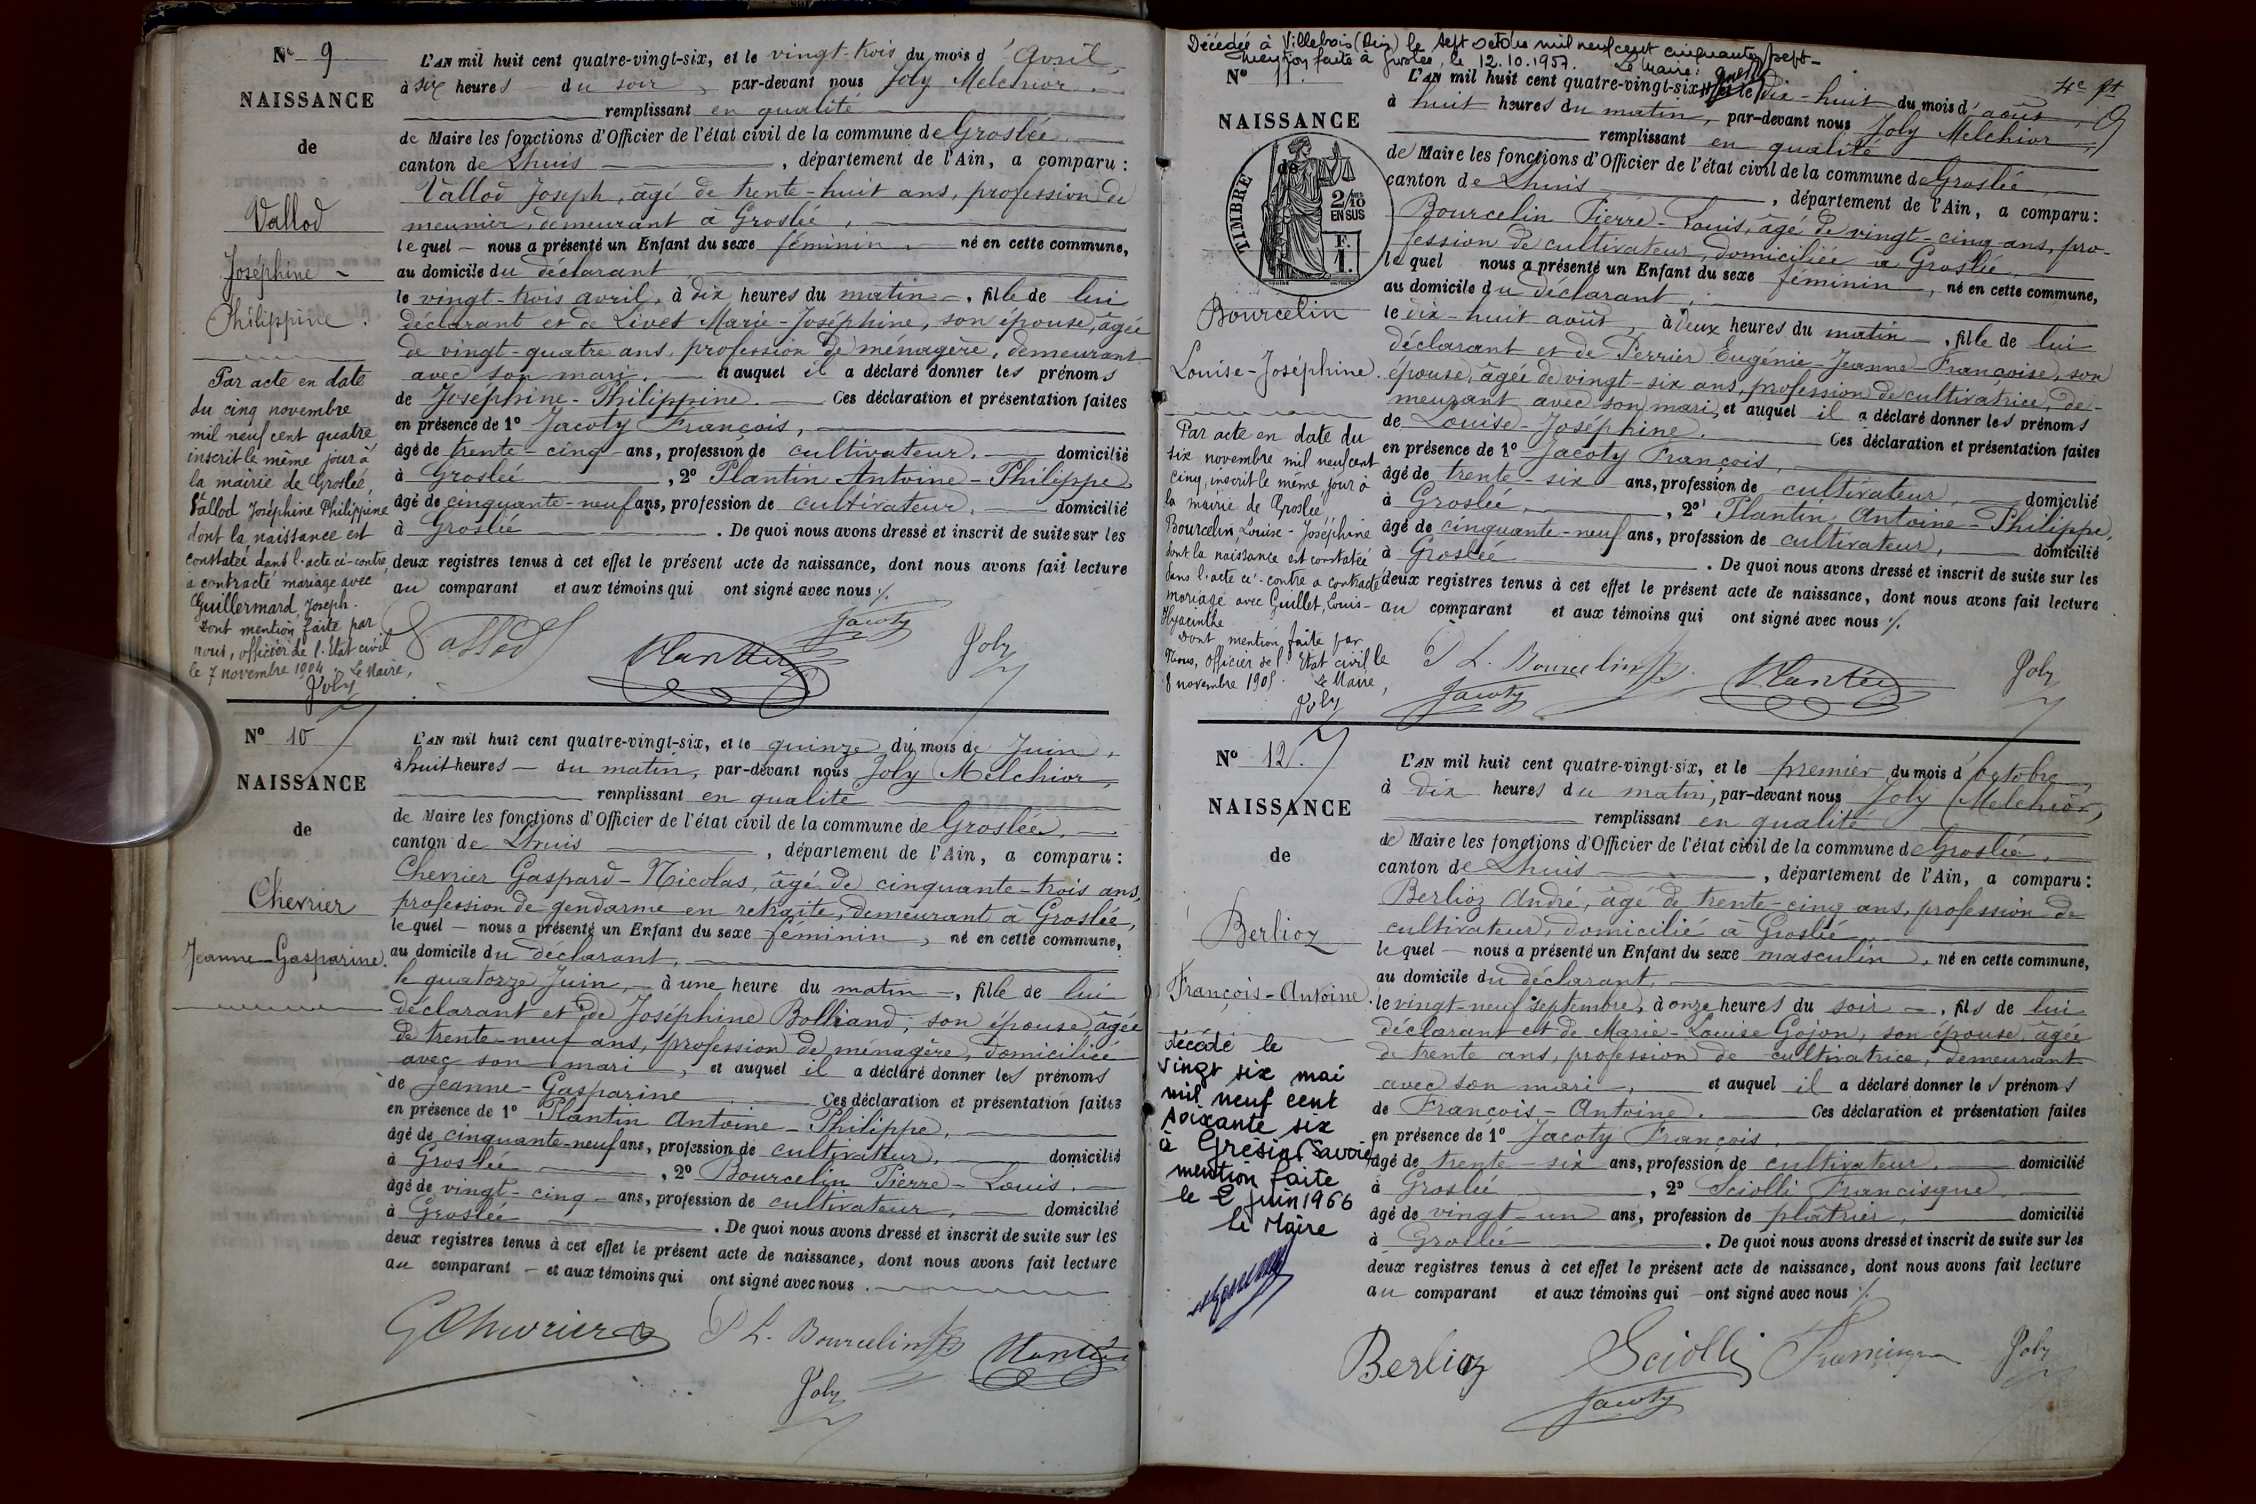 Nº 9
NAISSANCE
de
Vallod
Joséphine -
Philippine.
Par acte en date
du cinq novembre
mil neuf cent quatre,
inscrit le même jour à
la mairie de Groslée,
Vallod Joséphine Philippine
dont la naissance est
constatée dans l'acte ci-contre,
a contracté mariage avec
Guillermard Joseph.
Dont mention faite par
nous, officier de l'Etat civil
le 7 novembre 1904. Le Maire,
Joly
L'AN mil huit cent quatre-vingt-six, et le vingt-trois du mois d'Avril,
à six heures du soir, par-devant nous Joly Melchior
remplissant en qualité
de Maire les fonctions d'Officier de l'état civil de la commune de Groslée
canton de Lhuis, département de l'Ain, a comparu :
Vallod Joseph, âgé de trente-huit ans, profession de
meunier, demeurant à Groslée,
lequel - nous a présenté un Enfant du sexe féminin, né en cette commune,
au domicile du déclarant
le vingt-trois avril, à dix heures du matin -, fille de lui
déclarant et de Livet Marie-Joséphine, son épouse, âgée
de vingt-quatre ans, profession de ménagère, demeurant
avec son mari, et auquel il a déclaré donner les prénoms
de Joséphine-Philippine. Ces déclaration et présentation faites
en présence de 1º Jacoty François,
âgé de trente-cinq ans, profession de cultivateur, domicilié
à Groslée, 2º Plantin Antoine-Philippe,
âgé de cinquante-neuf ans, profession de cultivateur, domicilié
à Groslée. De quoi nous avons dressé et inscrit de suite sur les
deux registres tenus à cet effet le présent acte de naissance, dont nous avons fait lecture
au comparant et aux témoins qui ont signé avec nous ./.
Vallod Plantin Jacoty Joly
Nº 10
NAISSANCE
de
Chevrier
Jeanne-Gasparine.
L'AN mil huit cent quatre-vingt-six, et le quinze du mois de Juin,
à huit heures - du matin, par-devant nous Joly Melchior,
remplissant en qualité
de Maire les fonctions d'Officier de l'état civil de la commune de Groslée,
canton de Lhuis, département de l'Ain, a comparu :
Chevrier Gaspard-Nicolas, âgé de cinquante-trois ans,
profession de gendarme en retraite, demeurant à Groslée,
lequel - nous a présenté un Enfant du sexe féminin, né en cette commune,
au domicile du déclarant,
le quatorze Juin, à une heure du matin -, fille de lui
déclarant et de Joséphine Bolliand, son épouse, âgée
de trente-neuf ans, profession de ménagère, domiciliée
avec son mari, et auquel il a déclaré donner les prénoms
de Jeanne-Gasparine. Ces déclaration et présentation faites
en présence de 1º Plantin Antoine-Philippe,
âgé de cinquante-neuf ans, profession de cultivateur, domicilié
à Groslée, 2º Bourcelin Pierre-Louis,
âgé de vingt-cinq ans, profession de cultivateur, domicilié
à Groslée. De quoi nous avons dressé et inscrit de suite sur les
deux registres tenus à cet effet le présent acte de naissance, dont nous avons fait lecture
au comparant - et aux témoins qui ont signé avec nous.
G Chevrier P L. Bourcelin Plantin
Joly
Décédée à Villebois (Ain) le sept octobre mil neuf cent cinquante sept -
mention faite à Groslée, le 12.10.1957. Le Maire:
4e ft
9
Nº 11.
NAISSANCE
de
TIMBRE
2/10 EN SUS
F. 1.
Bourcelin
Louise-Joséphine.
Par acte en date du
six novembre mil neuf cent
cinq, inscrit le même jour à
la mairie de Groslée
Bourcelin Louise-Joséphine
dont la naissance est constatée
dans l'acte ci-contre a contracté
mariage avec Guillet, Louis-
Hyacinthe
Dont mention faite par
Nous, officier de l'Etat civil le
8 novembre 1905. Le Maire,
Joly
L'AN mil huit cent quatre-vingt-six, et le dix-huit du mois d'août,
à huit heures du matin, par-devant nous Joly Melchior,
remplissant en qualité
de Maire les fonctions d'Officier de l'état civil de la commune de Groslée,
canton de Lhuis, département de l'Ain, a comparu :
Bourcelin Pierre-Louis, âgé de vingt-cinq ans, pro-
fession de cultivateur, domiciliée à Groslée,
lequel nous a présenté un Enfant du sexe féminin, né en cette commune,
au domicile du déclarant,
le dix-huit août, à deux heures du matin -, fille de lui
déclarant et de Perrier Eugénie-Jeanne-Françoise, son
épouse, âgée de vingt-six ans, profession de cultivatrice, de-
meurant avec son mari, et auquel il a déclaré donner les prénoms
de Louise-Joséphine. Ces déclaration et présentation faites
en présence de 1º Jacoty François,
âgé de trente-six ans, profession de cultivateur, domicilié
à Groslée, 2º Plantin Antoine-Philippe,
âgé de cinquante-neuf ans, profession de cultivateur, domicilié
à Groslée. De quoi nous avons dressé et inscrit de suite sur les
deux registres tenus à cet effet le présent acte de naissance, dont nous avons fait lecture
au comparant et aux témoins qui ont signé avec nous ./.
P L. Bourcelin Jacoty Plantin Joly
Nº 12.
NAISSANCE
de
Berlioz
François-Antoine.
décédé le
vingt six mai
mil neuf cent
soixante six
à Grésin (Savoie)
mention faite
le 2 juin 1966
le Maire
L'AN mil huit cent quatre-vingt-six, et le premier du mois d'octobre,
à dix heures du matin, par-devant nous Joly Melchior,
remplissant en qualité
de Maire les fonctions d'Officier de l'état civil de la commune de Groslée,
canton de Lhuis, département de l'Ain, a comparu :
Berlioz André, âgé de trente-cinq ans, profession de
cultivateur, domicilié à Groslée
lequel - nous a présenté un Enfant du sexe masculin, né en cette commune,
au domicile du déclarant,
le vingt-neuf septembre, à onze heures du soir -, fils de lui
déclarant et de Marie-Louise Gojon, son épouse, âgée
de trente ans, profession de cultivatrice, demeurant
avec son mari, et auquel il a déclaré donner les prénoms
de François-Antoine. Ces déclaration et présentation faites
en présence de 1º Jacoty François,
âgé de trente-six ans, profession de cultivateur, domicilié
à Groslée, 2º Sciolli Francisque,
âgé de vingt-un ans, profession de plâtrier, domicilié
à Groslée. De quoi nous avons dressé et inscrit de suite sur les
deux registres tenus à cet effet le présent acte de naissance, dont nous avons fait lecture
au comparant et aux témoins qui ont signé avec nous ./.
Berlioz Sciolli Joly
Jacoty